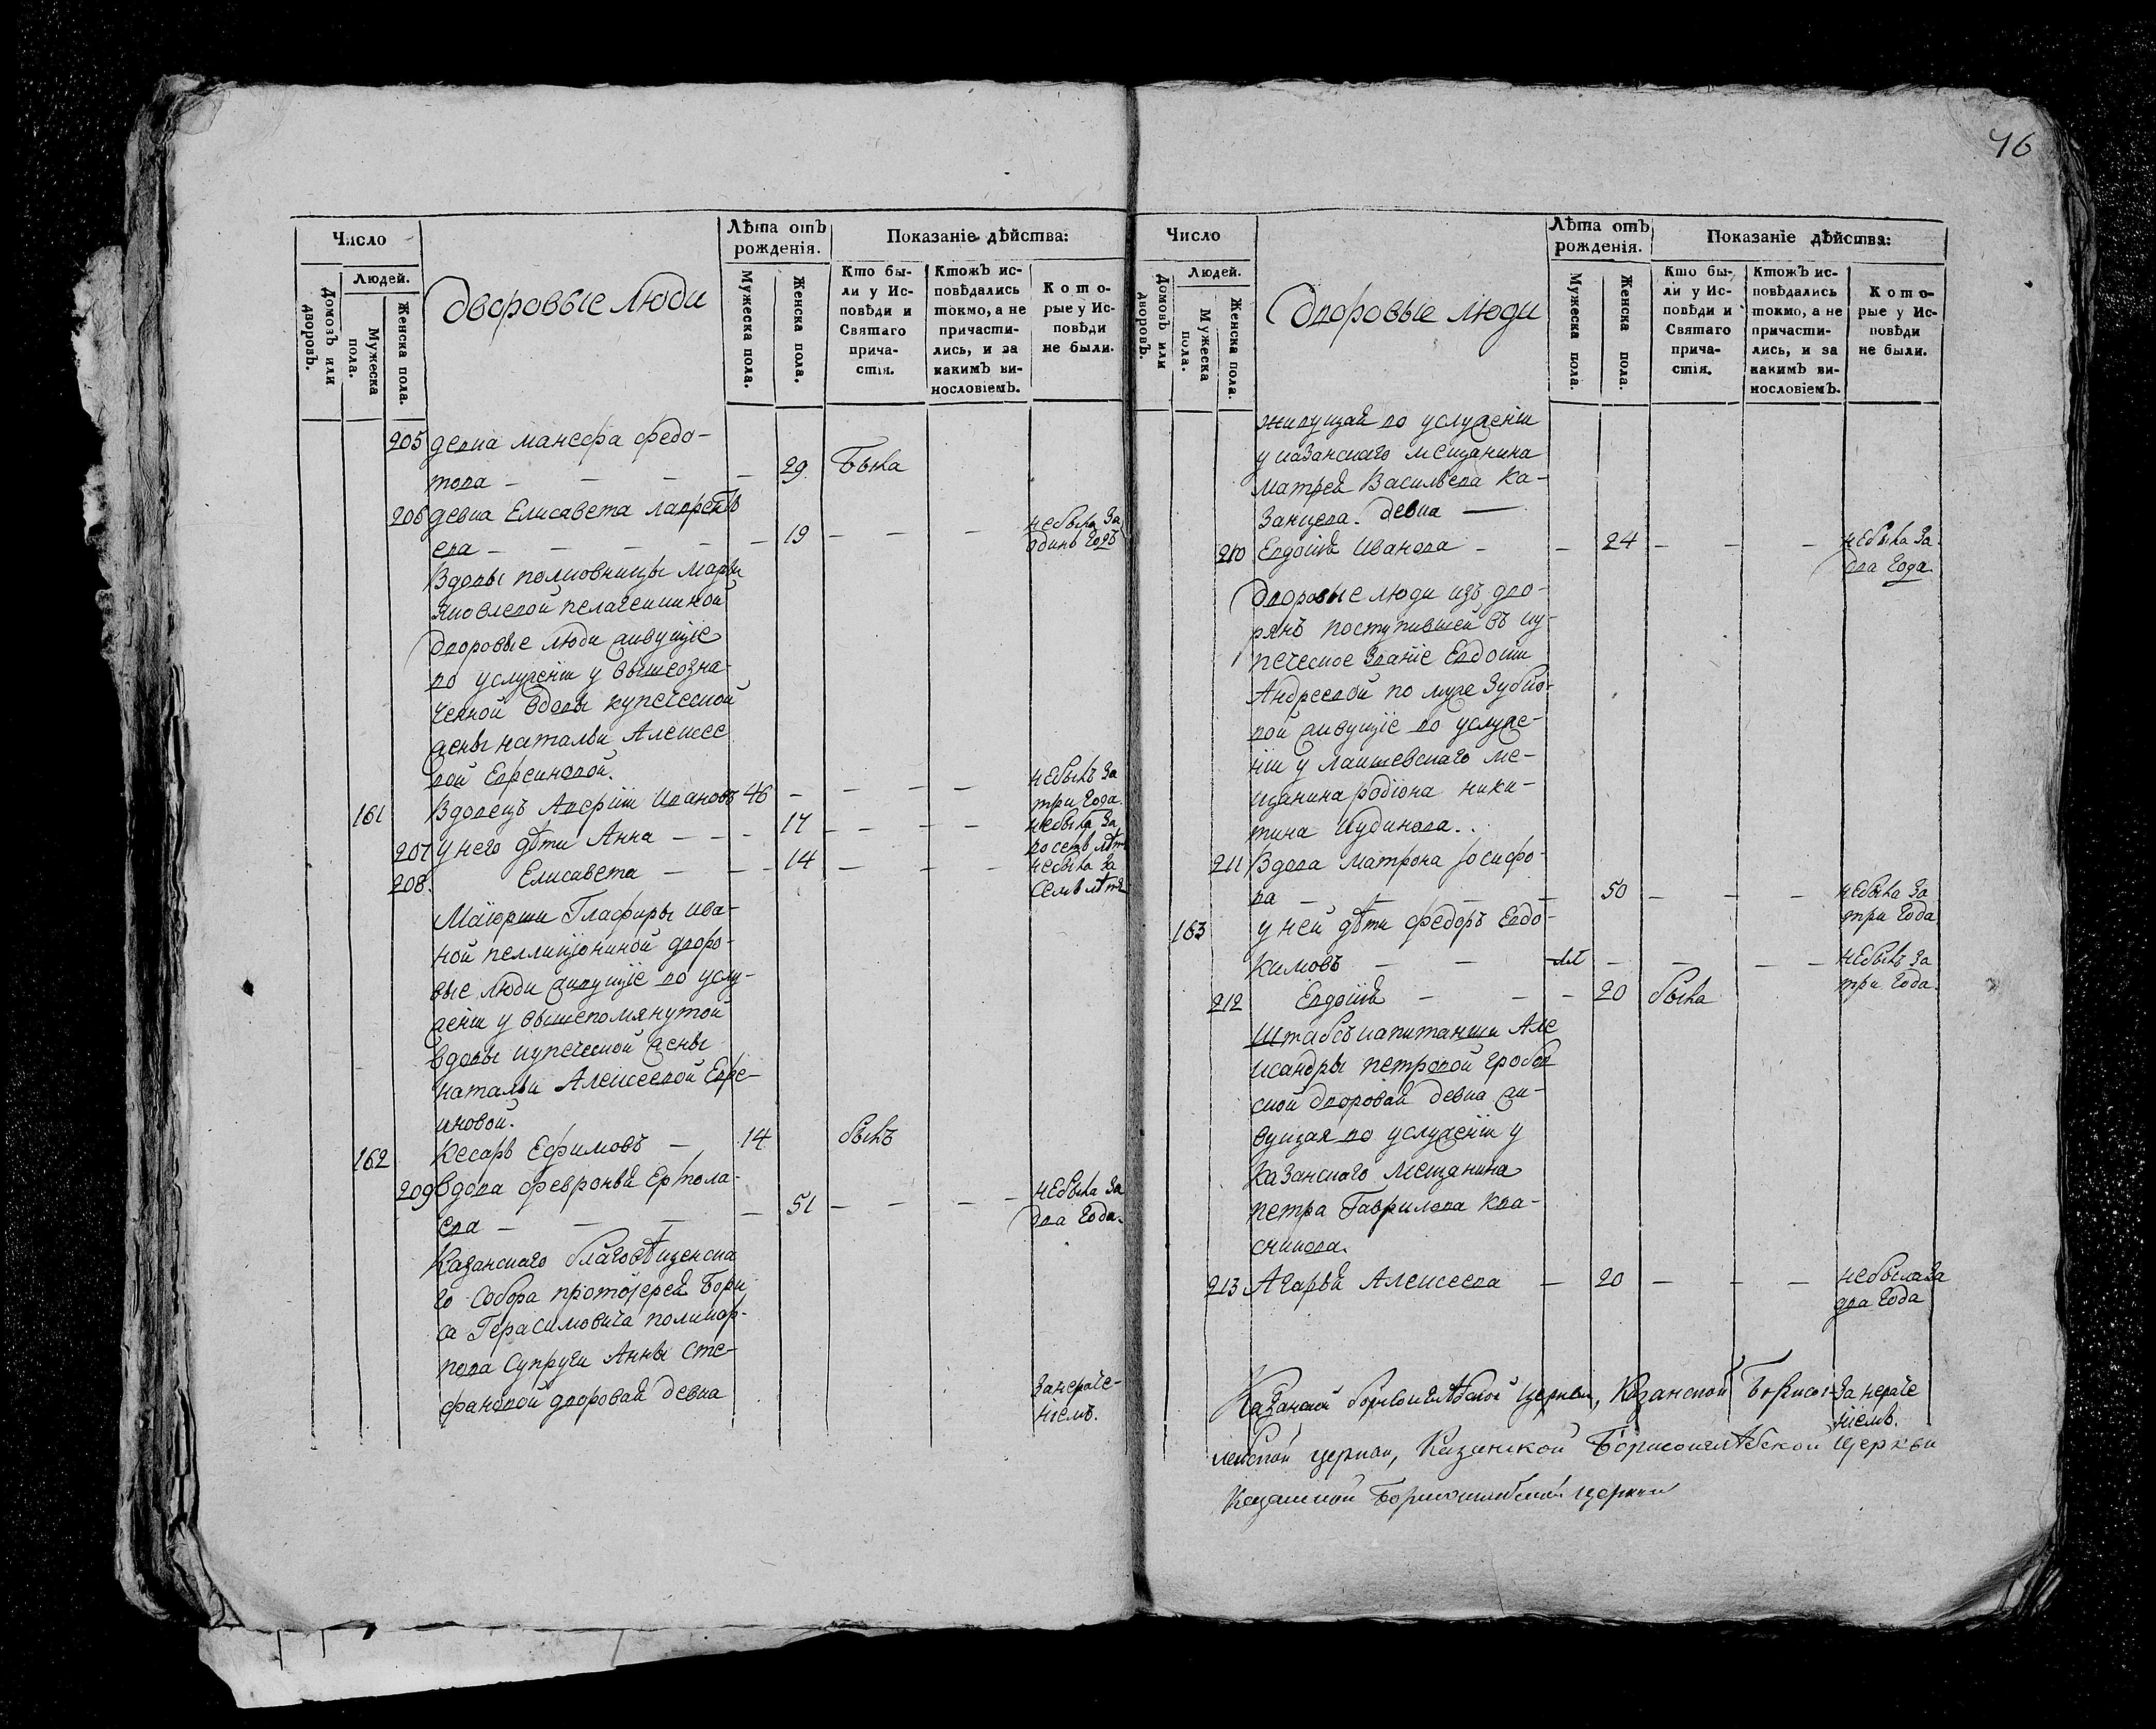 46
Число
Людей.
Домовъ или дворовъ.
Мужеска пола.
Женска пола.
Дворовые Люди
Лѣта отъ рожденія.
Мужеска пола.
Женска пола.
Показаніе дѣйства:
Кто бы-
ли у Ис-
повѣди и
Святаго
прича-
стія.
Ктожъ ис-
повѣдались
токмо, а не
причасти-
лись, и за
какимъ ви-
нословіемъ.
Кото-
рые у Ис-
повѣди
не были.
205 девка Манефа Федо-
това — — — — 29 Была
206 девка Елисавета Лаврентъ
ева — — — — — 19 — — — небыла За
одинъ Годъ
Вдовы полковницы Марьи
Яковлевой
Дворовые люди живущіе
во услуженіи у вышеозна-
ченной вдовы купеческой
жены Натальи Алексее
вой Евреиновой.
161 Вдовецъ Аверкій Ивановъ 46 — — — — небылъ За
три Года.
207 у него дѣти Анна — — — 17 — — — — небыла За
восемь лѣтъ
208. Елисавета — — — 14 — — — небыла За
Семь лѣтъ
Маіорши Глафиры Ива-
ной дворо-
вые люди живущіе во услу-
женіи у вышепомянутой
вдовы купеческой жены
Натальи Алексеевой Евре-
иновой.
162 Кесарь Ефимовъ — 14 былъ
209 Вдова Февронья Ермола-
ева — — — — 51 — — — — небыла За
два Года.
Казанскаго благовѣщенска
го Собора протоіерея Бори
са Герасимовича Поликар-
пова Супруги Анны Сте-
фановой дворовая девка
Занераче-
ніемъ.
Число
Людей.
Домовъ или дворовъ.
Мужеска пола.
Женска пола.
Дворовые люди
Лѣта отъ рожденія.
Мужеска пола.
Женска пола.
Показаніе дѣйства:
Кто бы-
ли у Ис-
повѣди и
Святаго
прича-
стія.
Ктожъ ис-
повѣдались
токмо, а не
причасти-
лись, и за
какимъ ви-
нословіемъ.
Кото-
рые у Ис-
повѣди
не были.
живущая во услуженіи
у казанскаго мещанина
Матвея Васильева Ка-
занцева. девка —
210 Евдокія Иванова — — 24 — — небыла За
два Года.
Дворовые люди изъ дво-
рянъ поступившей въ ку-
печеское Званіе Евдокіи
Андреевой по муже Зубко-
вой живущіе во услуже-
ніи у лаишевскаго ме-
щанина Родіона Ники-
тина Кудинова.
211 Вдова Матрона Іосифо-
ва — — — — 50 — — — небыла За
три Года
163 у ней дѣти Федоръ Евдо-
кимовъ — — — — — — небылъ За
три Года.
212 Евдокія — — — 20 была
Штабсъ капитанши Але
ксандры Петровой
ской дворовая девка жи-
вущая во услуженіи у
казанскаго Мещанина
Петра Гаврилова Ква-
сникова.
213 Агафья Алексеева — 20 — — — небылаЗа
два Года
Казанской Борисоглѣбской церкви, Казанской Борисог-
Занераче
ніемъ.
лебской церкви, Казанской Борисоглѣбской Церкви
Казанской Борисоглѣбской церкви